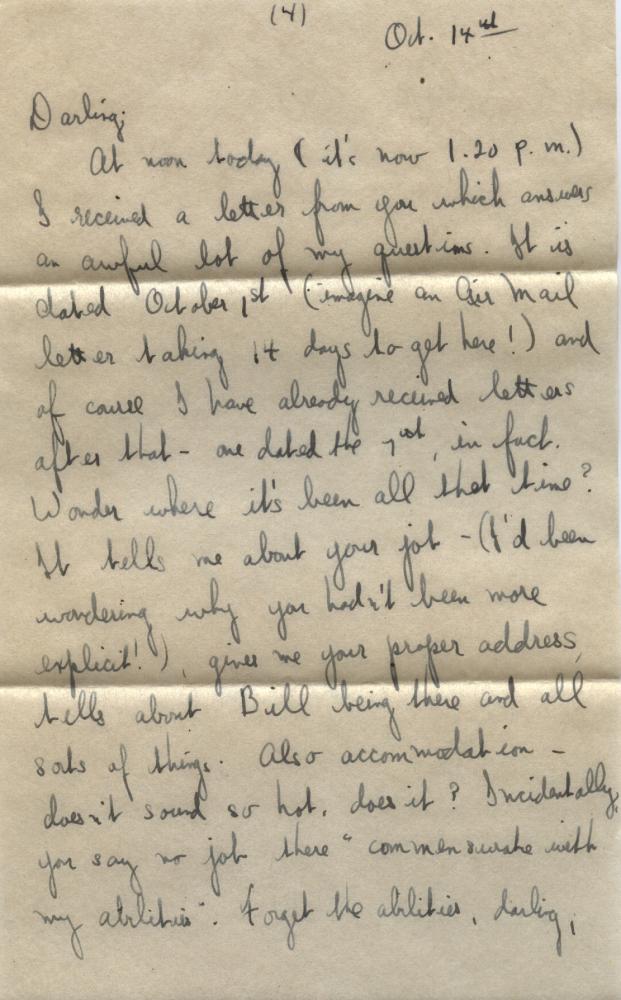 (4)
Oct. 14th
Darling;
At noon today (it's now 1.20 p.m.)
I received a letter from you which answers
an awful lot of my questions. It is
dated October 1st (imagine an Air Mail
letter taking 14 days to get here!) and
of course I have already received letters
after that - one dated the 7th, in fact.
Wonder where it's been all that time?
It tells me about your job - (I'd been
wondering why you hadn't been more
explicit!), gives me your proper address,
tells about Bill being there and all
sorts of things. Also accommodation -
doesn't sound so hot, does it? Incidentally,
you say no job there "commensurate with
my abilities". Forget the abilities, darling,